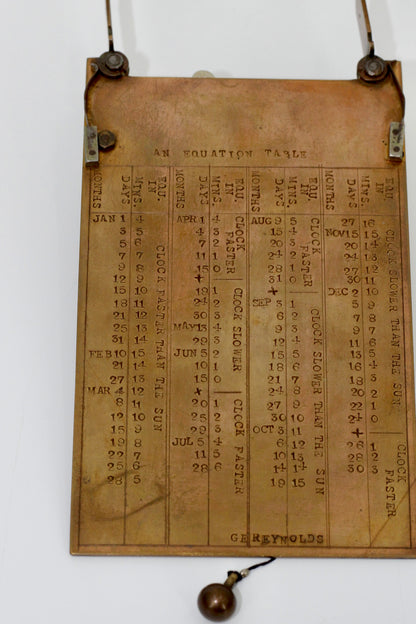 AN EQUATION TABLE
MONTHS
DAYS
EQU. IN MINS.
JAN 1 4
3 5
5 6
7 7
9 8
12 9
15 10
18 11
21 12
25 13
31 14
FEB 10 15
21 14
27 13
MAR 4 12
8 11
12 10
15 9
19 8
22 7
25 6
28 5
CLOCK FASTER THAN THE SUN
MONTHS
DAYS
EQU. IN MINS.
APR 1 4
4 3
7 2
11 1
15 0
+
19 1
24 2
30 3
MAY 13 4
29 3
JUN 5 2
10 1
15 0
+
20 1
25 2
29 3
JUL 5 4
11 5
28 6
CLOCK FASTER
CLOCK SLOWER
CLOCK FASTER
MONTHS
DAYS
EQU. IN MINS.
AUG 9 5
15 4
20 3
24 2
28 1
31 0
+
SEP 3 1
6 2
9 3
12 4
15 5
18 6
21 7
24 8
27 9
30 10
OCT 3 11
6 12
10 13
14 14
19 15
CLOCK FASTER
CLOCK SLOWER THAN THE SUN
MONTHS
DAYS
EQU. IN MINS.
27 16
NOV 15 15
20 14
24 13
27 12
30 11
DEC 2 10
5 9
7 8
9 7
11 6
13 5
16 4
18 3
20 2
22 1
24 0
+
26 1
28 2
30 3
CLOCK SLOWER THAN THE SUN
CLOCK FASTER
GEREYNOLDS